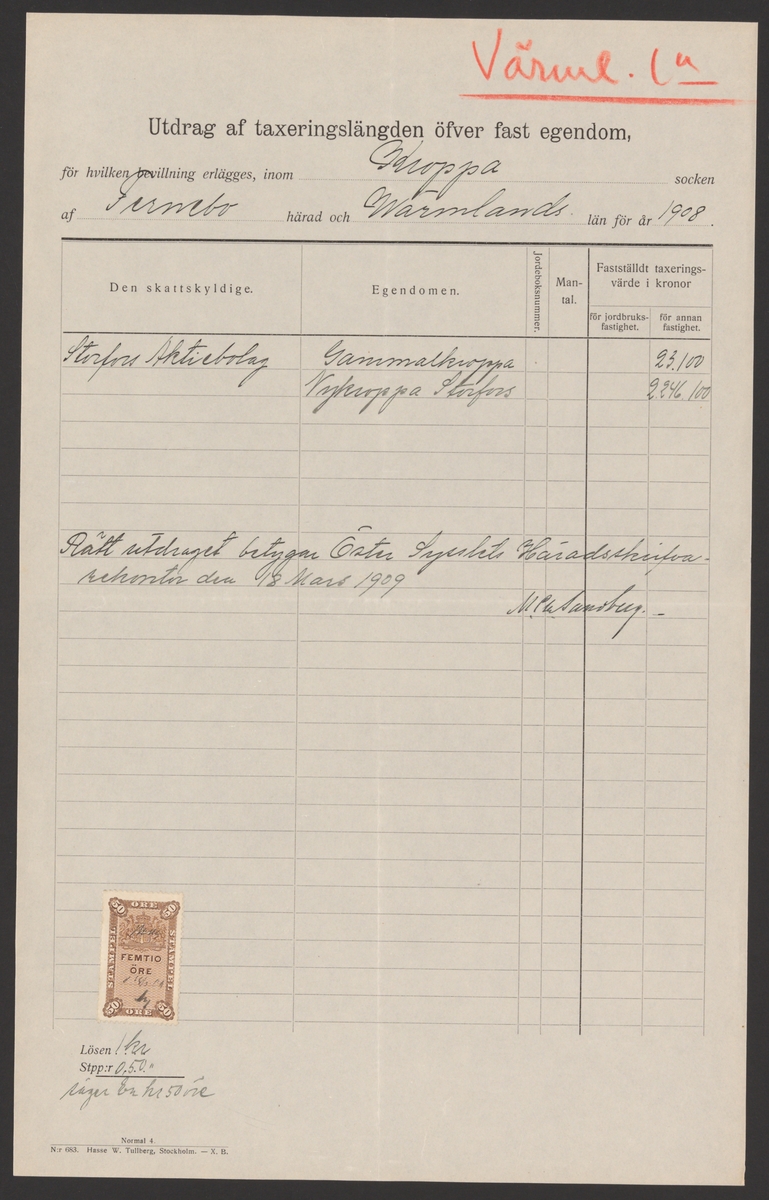 Värml.
Utdrag af taxeringslängden öfver fast egendom,
för hvilken bevillning erlägges, inom Kroppa socken
af Fernebo härad och Wärmlands län för år 1908.
Den skattskyldige. Egendomen. Jordeboksnummer. Man-
tal. Fastställdt taxerings-
värde i kronor
för jordbruks-
fastighet. för annan
fastighet.
Storfors Aktiebolag Gammalkroppa 23,100
Nykroppa Storfors 2246,100
Rätt utdraget betygar Öster Sysslets Häradsskrifva-
rekontor den 18 Mars 1909
Sandberg.
50 ÖRE 50
STAMPEL STAMPEL
FEMTIO
ÖRE
50 ÖRE 50
Lösen 1 kr
Stpp:r 0,50 "
säger en kr 50 öre
Normal 4.
N:r 683. Hasse W. Tullberg, Stockholm. — X. B.